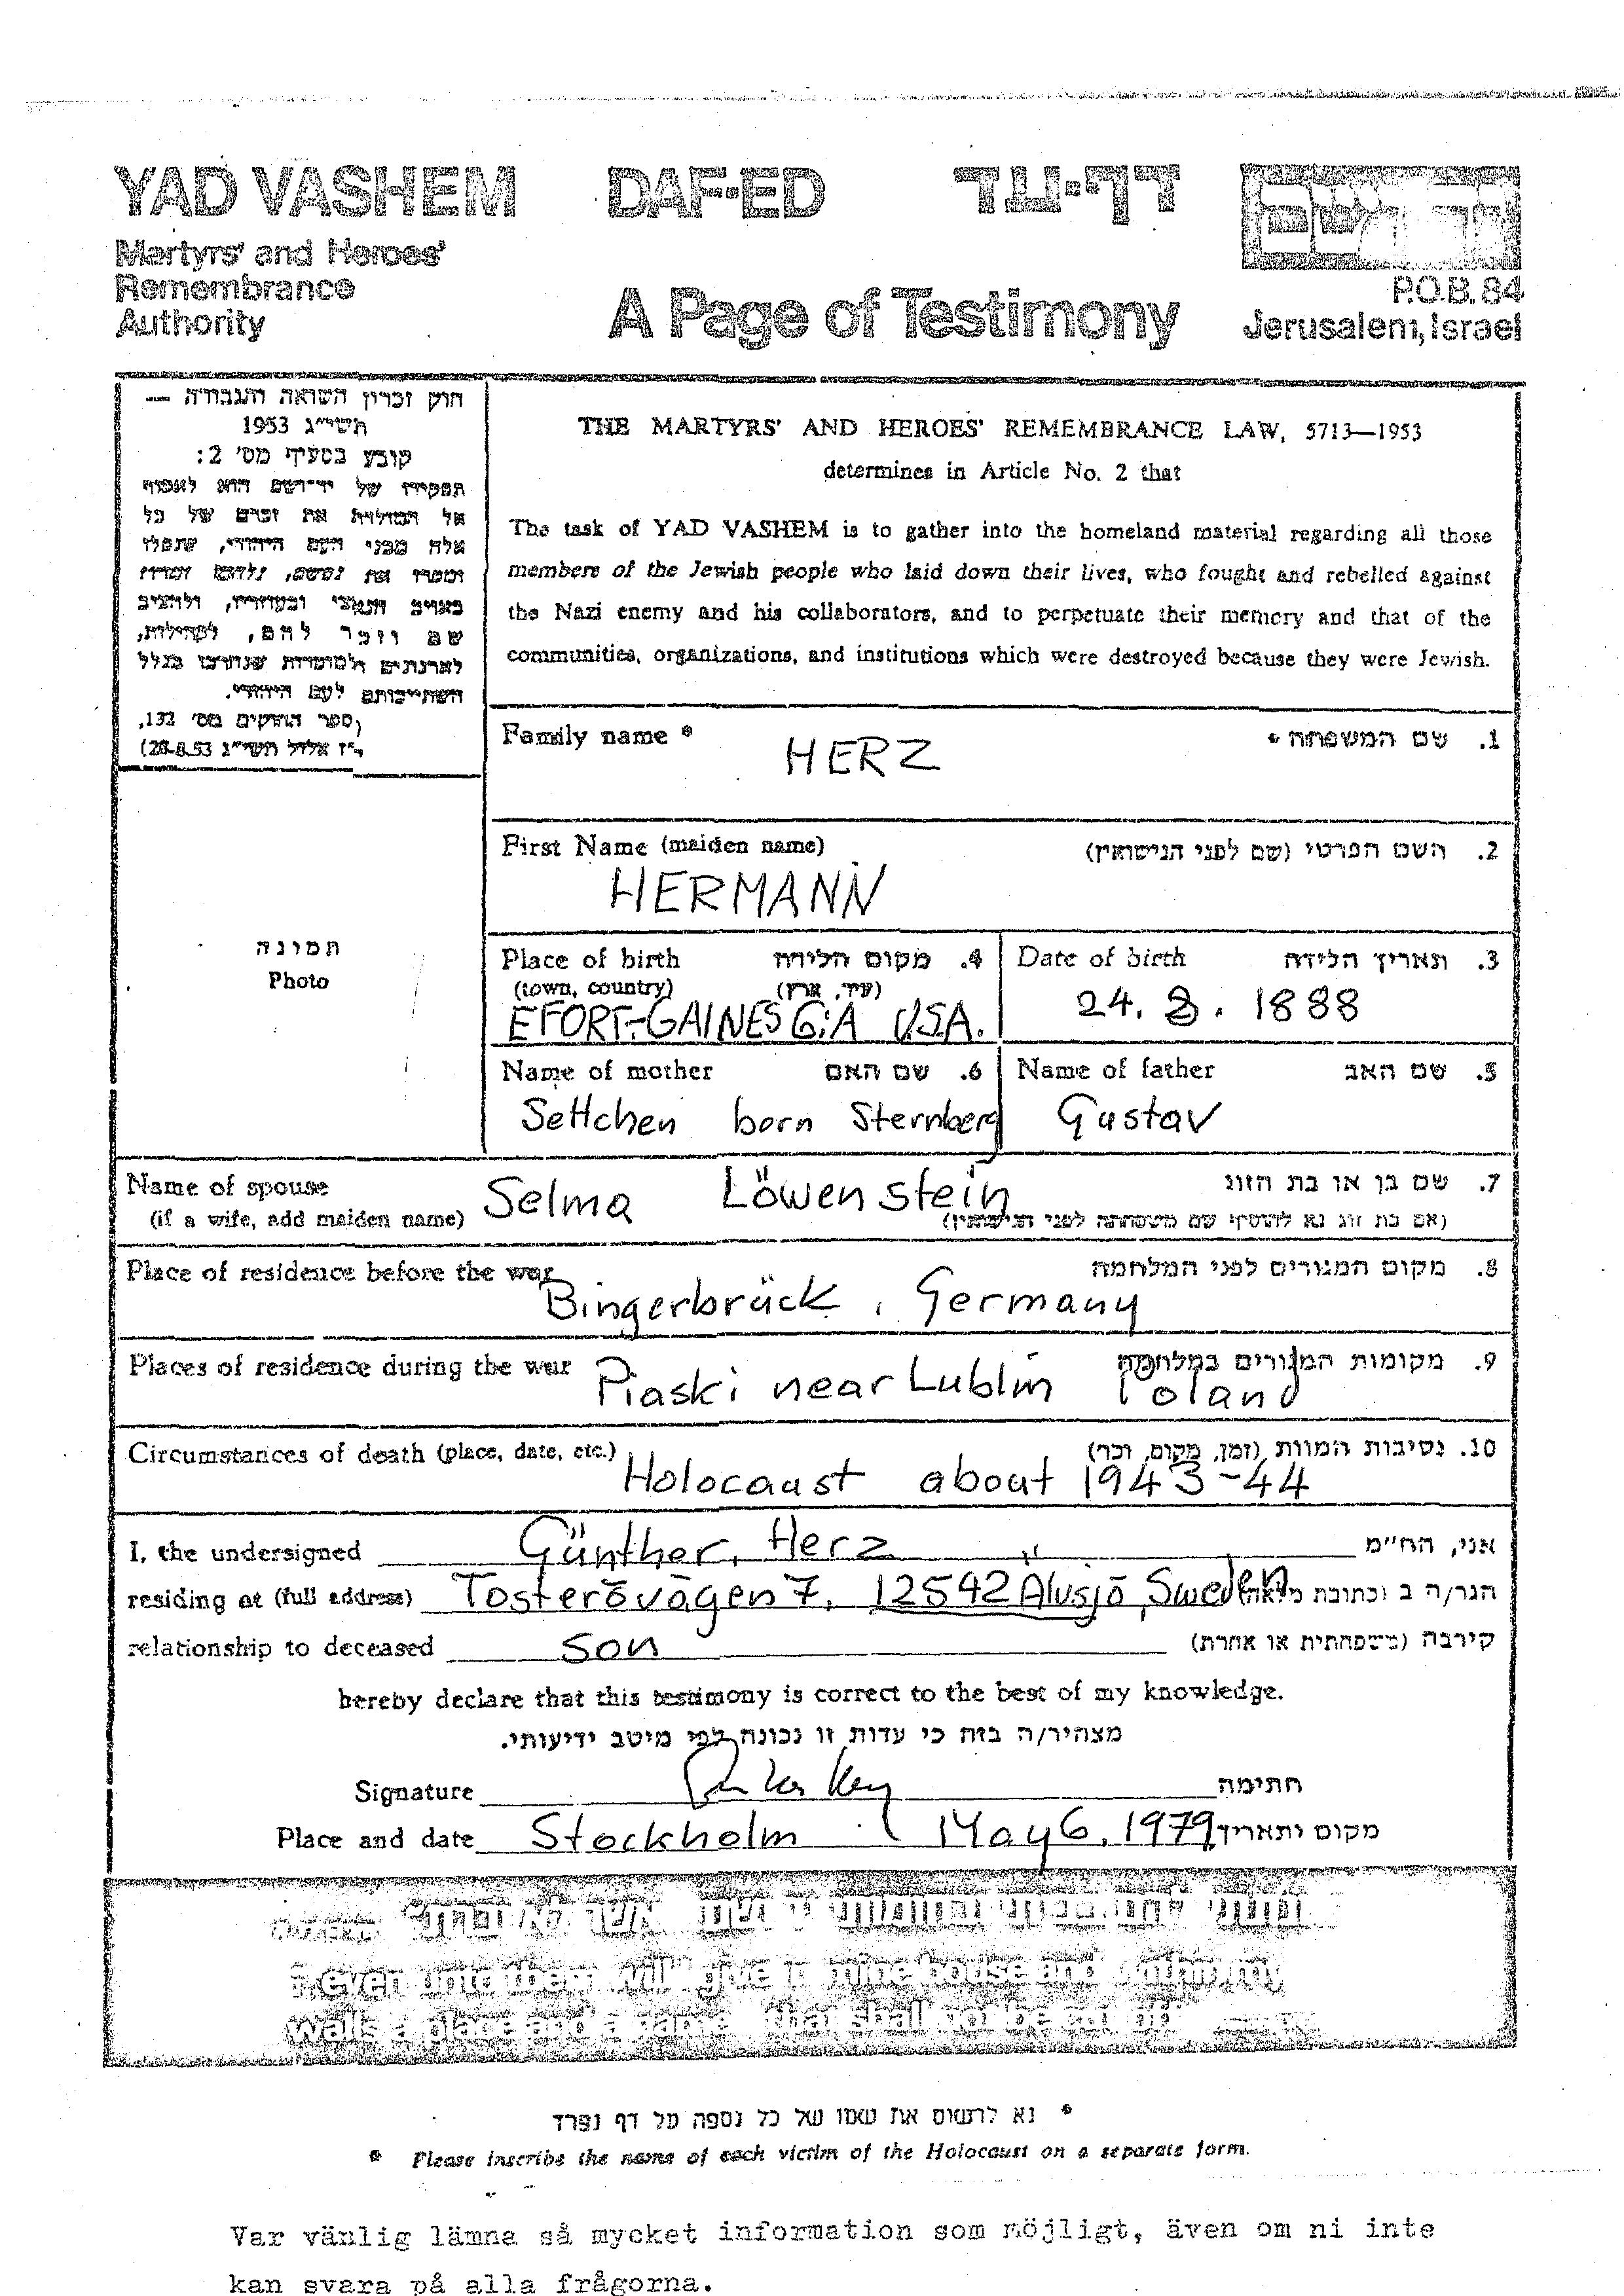 YAD VASHEM DAF-ED דף-עד
Martyrs' and Heroes'
Remembrance
Authority
A Page of Testimony
P.O.B. 84
Jerusalem, Israel
חוק זכרון השואה והגבורה —
תשי"ג 1953
קובע בסעיף מס' 2:
תפקידו של יד-ושם הוא לאסוף
אל המולדת את זכרם של כל
אלה מבני העם היהודי, שנפלו
ומסרו את נפשם, נלחמו ומרדו
באויב הנאצי ובעוזריו, ולהציב
שם וזכר להם, לקהילות,
לארגונים ולמוסדות שנחרבו בגלל
השתייכותם לעם היהודי.
(ספר החוקים מס' 132,
י"ז אלול תשי"ג 28.8.53)
THE MARTYRS' AND HEROES' REMEMBRANCE LAW, 5713—1953
determines in Article No. 2 that
The task of YAD VASHEM is to gather into the homeland material regarding all those
members of the Jewish people who laid down their lives, who fought and rebelled against
the Nazi enemy and his collaborators, and to perpetuate their memory and that of the
communities, organizations, and institutions which were destroyed because they were Jewish.
Family name * 1. שם המשפחה *
HERZ
First Name (maiden name) 2. השם הפרטי (שם לפני הנישואין)
HERMANN
תמונה
Photo
Place of birth 4. מקום הלידה
(town, country) (עיר, ארץ)
EFORT-GAINES G:A U.S.A.
Date of birth 3. תאריך הלידה
24. 8. 1888
Name of mother 6. שם האם
Settchen born Sternberg
Name of father 5. שם האב
Gustav
Name of spouse 7. שם בן או בת הזוג
(if a wife, add maiden name) Selma Löwenstein (אם בת זוג נא להוסיף שם משפחתה לפני הנישואין)
Place of residence before the war 8. מקום המגורים לפני המלחמה
Bingerbrück, Germany
Places of residence during the war 9. מקומות המגורים במלחמה
Piaski near Lublin Poland
Circumstances of death (place, date, etc.) 10. נסיבות המוות (זמן, מקום, וכו')
Holocaust about 1943-44
I, the undersigned Günther, Herz אני, הח"מ
residing at (full address) Tosterövägen 7, 12542 Älvsjö, Sweden הגר/ה ב (כתובת מלאה)
relationship to deceased son קירבה (משפחתית או אחרת)
hereby declare that this testimony is correct to the best of my knowledge.
מצהיר/ה בזה כי עדות זו נכונה לפי מיטב ידיעותי.
Signature חתימה
Place and date Stockholm May 6, 1979 מקום ותאריך
...even unto them will I give in mine house and within my
walls a place and a name... that shall not be cut off
* נא לרשום את שמו של כל נספה על דף נפרד
* Please inscribe the name of each victim of the Holocaust on a separate form.
Var vänlig lämna så mycket information som möjligt, även om ni inte
kan svara på alla frågorna.